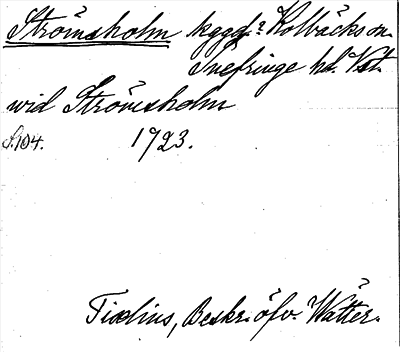 Strömsholm kggd? Kolbäcks sn.
Snefringe hd. Vstm.
wid Strömsholm
S. 104. 1723.
Tiselius, Beskr. öfv. Wätter.